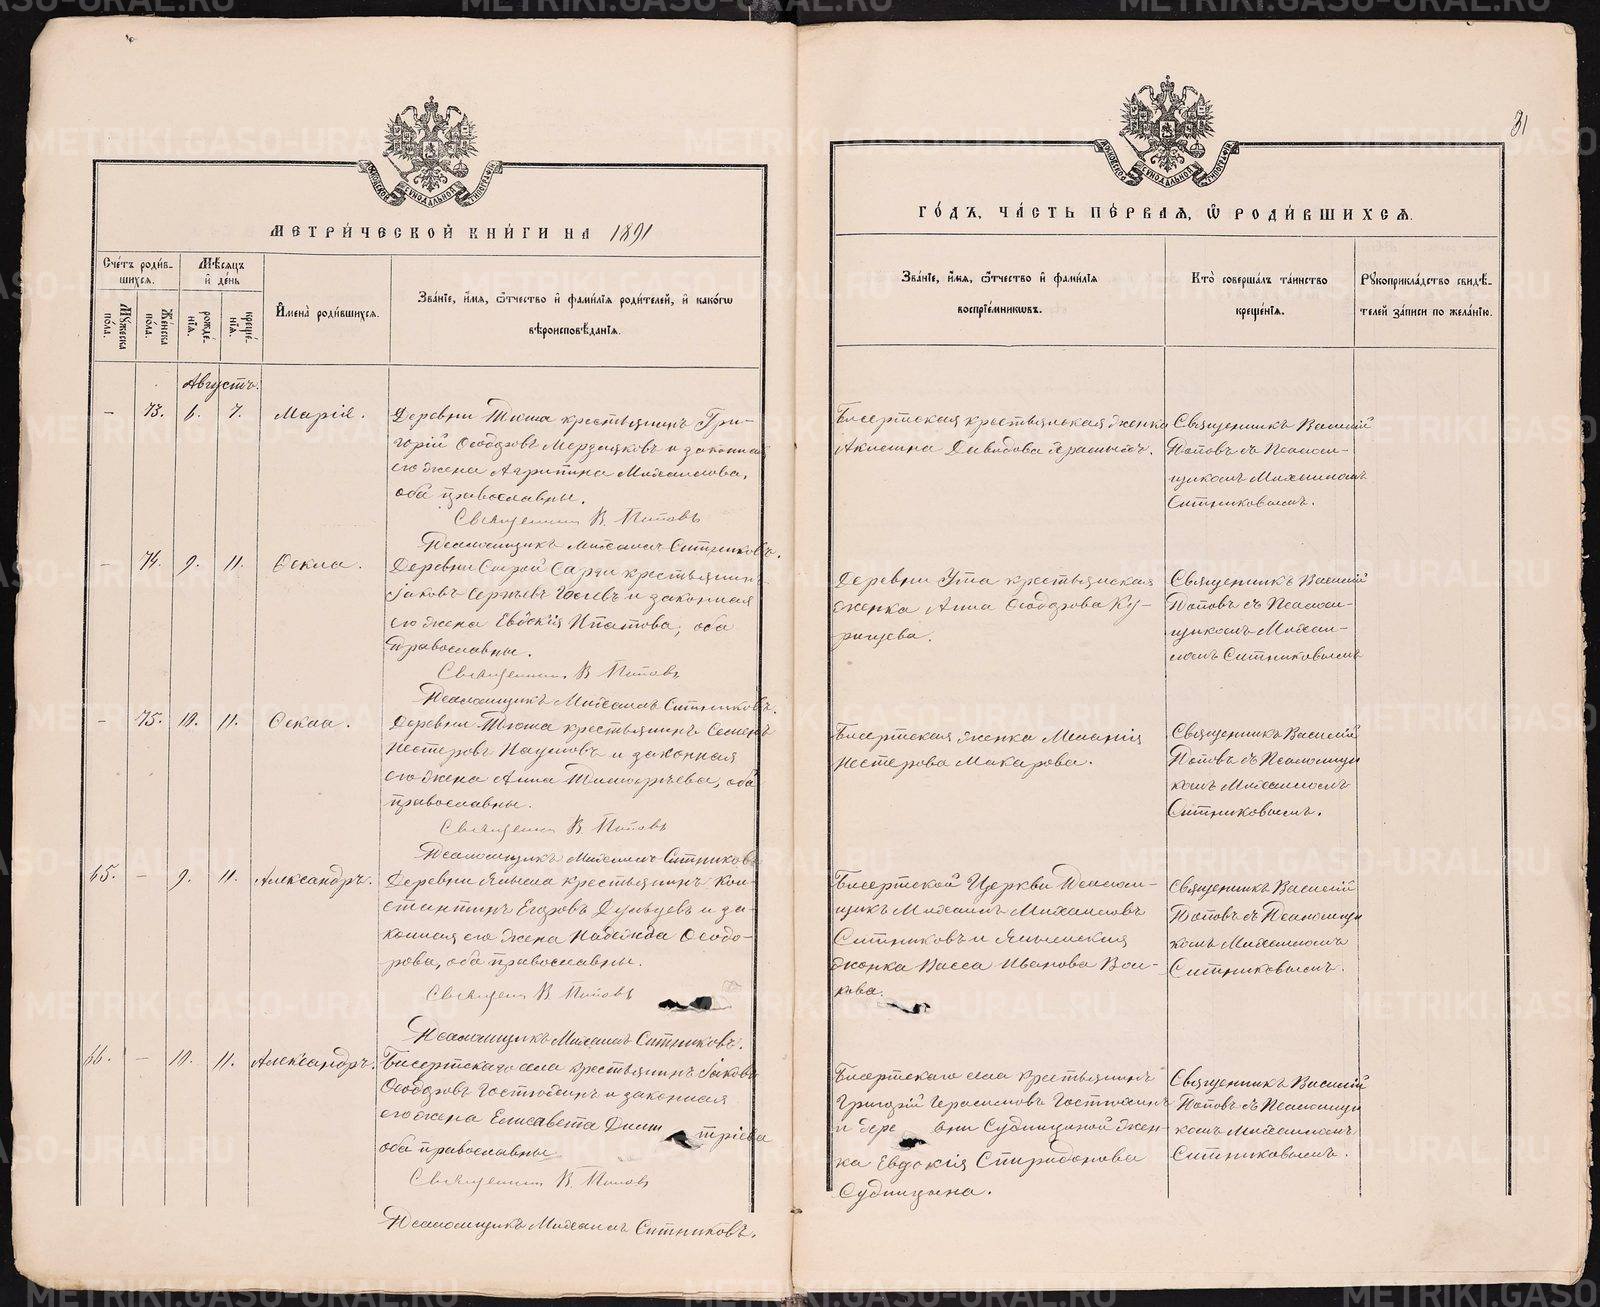 МЕТРИ́ЧЕСКОЙ КНИ́ГИ НА 1891
Сче́тъ роди́в-
шихся.
Мѣ́сяцъ
и҆ де́нь
Му́жеска
по́ла.
Же́нска
по́ла.
рожде́-
нїя.
креще́-
нїя.
И҆мена̀ роди́вшихся.
Зва́нїе, и҆́мя, ѻ҆́тчество и҆ фами́лїя роди́телей, и҆ како́гѡ
вѣроисповѣ́данїя.
Августъ.
– 73. 6. 7. Марія.
Деревни Тюша крестьянинъ Гри-
горій Ѳеодоровъ Мерзляковъ и законная
его жена Агрипина Михаилова,
оба православны.
Священникъ В. Поповъ
Псаломщикъ Михаилъ Ситниковъ.
– 74. 9. 11. Ѳекла.
Деревни Старой Сарзи крестьянинъ
Іаковъ Сергѣевъ и законная
его жена Евдокія Ипатова, оба
православны.
Священникъ В. Поповъ
Псаломщикъ Михаилъ Ситниковъ.
– 75. 10. 11. Ѳекла.
Деревни Тюша крестьянинъ Семенъ
Нестеровъ Наумовъ и законная
его жена Анна Тимофеева, оба
православны.
Священникъ В. Поповъ
Псаломщикъ Михаилъ Ситниковъ
65. – 9. 11. Александръ.
Деревни Янына крестьянинъ Кон-
стантинъ Егоровъ Дульцевъ и за-
конная его жена Надежда Ѳеодо-
рова, оба православны.
Священникъ В. Поповъ
Псаломщикъ Михаилъ Ситниковъ.
66. – 10. 11. Александръ.
Бисертскаго села крестьянинъ Іаковъ
Ѳеодоровъ Гостюхинъ и законная
его жена Елисавета Димитріева
оба православны
Священникъ В. Поповъ
Псаломщикъ Михаилъ Ситниковъ.
31
ГО́ДЪ, ЧА́СТЬ ПЕ́РВАЯ, Ѽ РОДИ́ВШИХСЯ.
Зва́нїе, и҆́мя, ѻ҆́тчество и҆ фами́лїя
воспрїе́мникѡвъ.
Кто̀ соверша́лъ та́инство
креще́нїя.
Рꙋкоприкла́дство свидѣ́-
телей за́писи по жела́нїю.
Бисертская крестьянская женка
Акилина Давидова
Священникъ Василій
Поповъ съ Псалом-
щикомъ Михаиломъ
Ситниковымъ.
Деревни Ута крестьянская
женка Анна Ѳеодорова Ку-
рицева.
Священникъ Василій
Поповъ съ Псалом-
щикомъ Михаи-
ломъ Ситниковымъ
Бисертская женка Меланія
Нестерова Макарова.
Священникъ Василій
Поповъ съ Псаломщи
комъ Михаиломъ
Ситниковымъ.
Бисертской Церкви Псалом-
щикъ Михаилъ Михаиловъ
Ситниковъ и Янынская
женка Васса Иванова Вол-
кова.
Священникъ Василій
Поповъ съ Псаломщи
комъ Михаиломъ
Ситниковымъ.
Бисертскаго села крестьянинъ
Григорій Герасимовъ Гостюхинъ
и деревни Судницыной жен-
ка Евдокія Спиридонова
Судницына.
Священникъ Василій
Поповъ съ Псаломщи
комъ Михаиломъ
Ситниковымъ.
METRIKI.GASO-URAL.RU